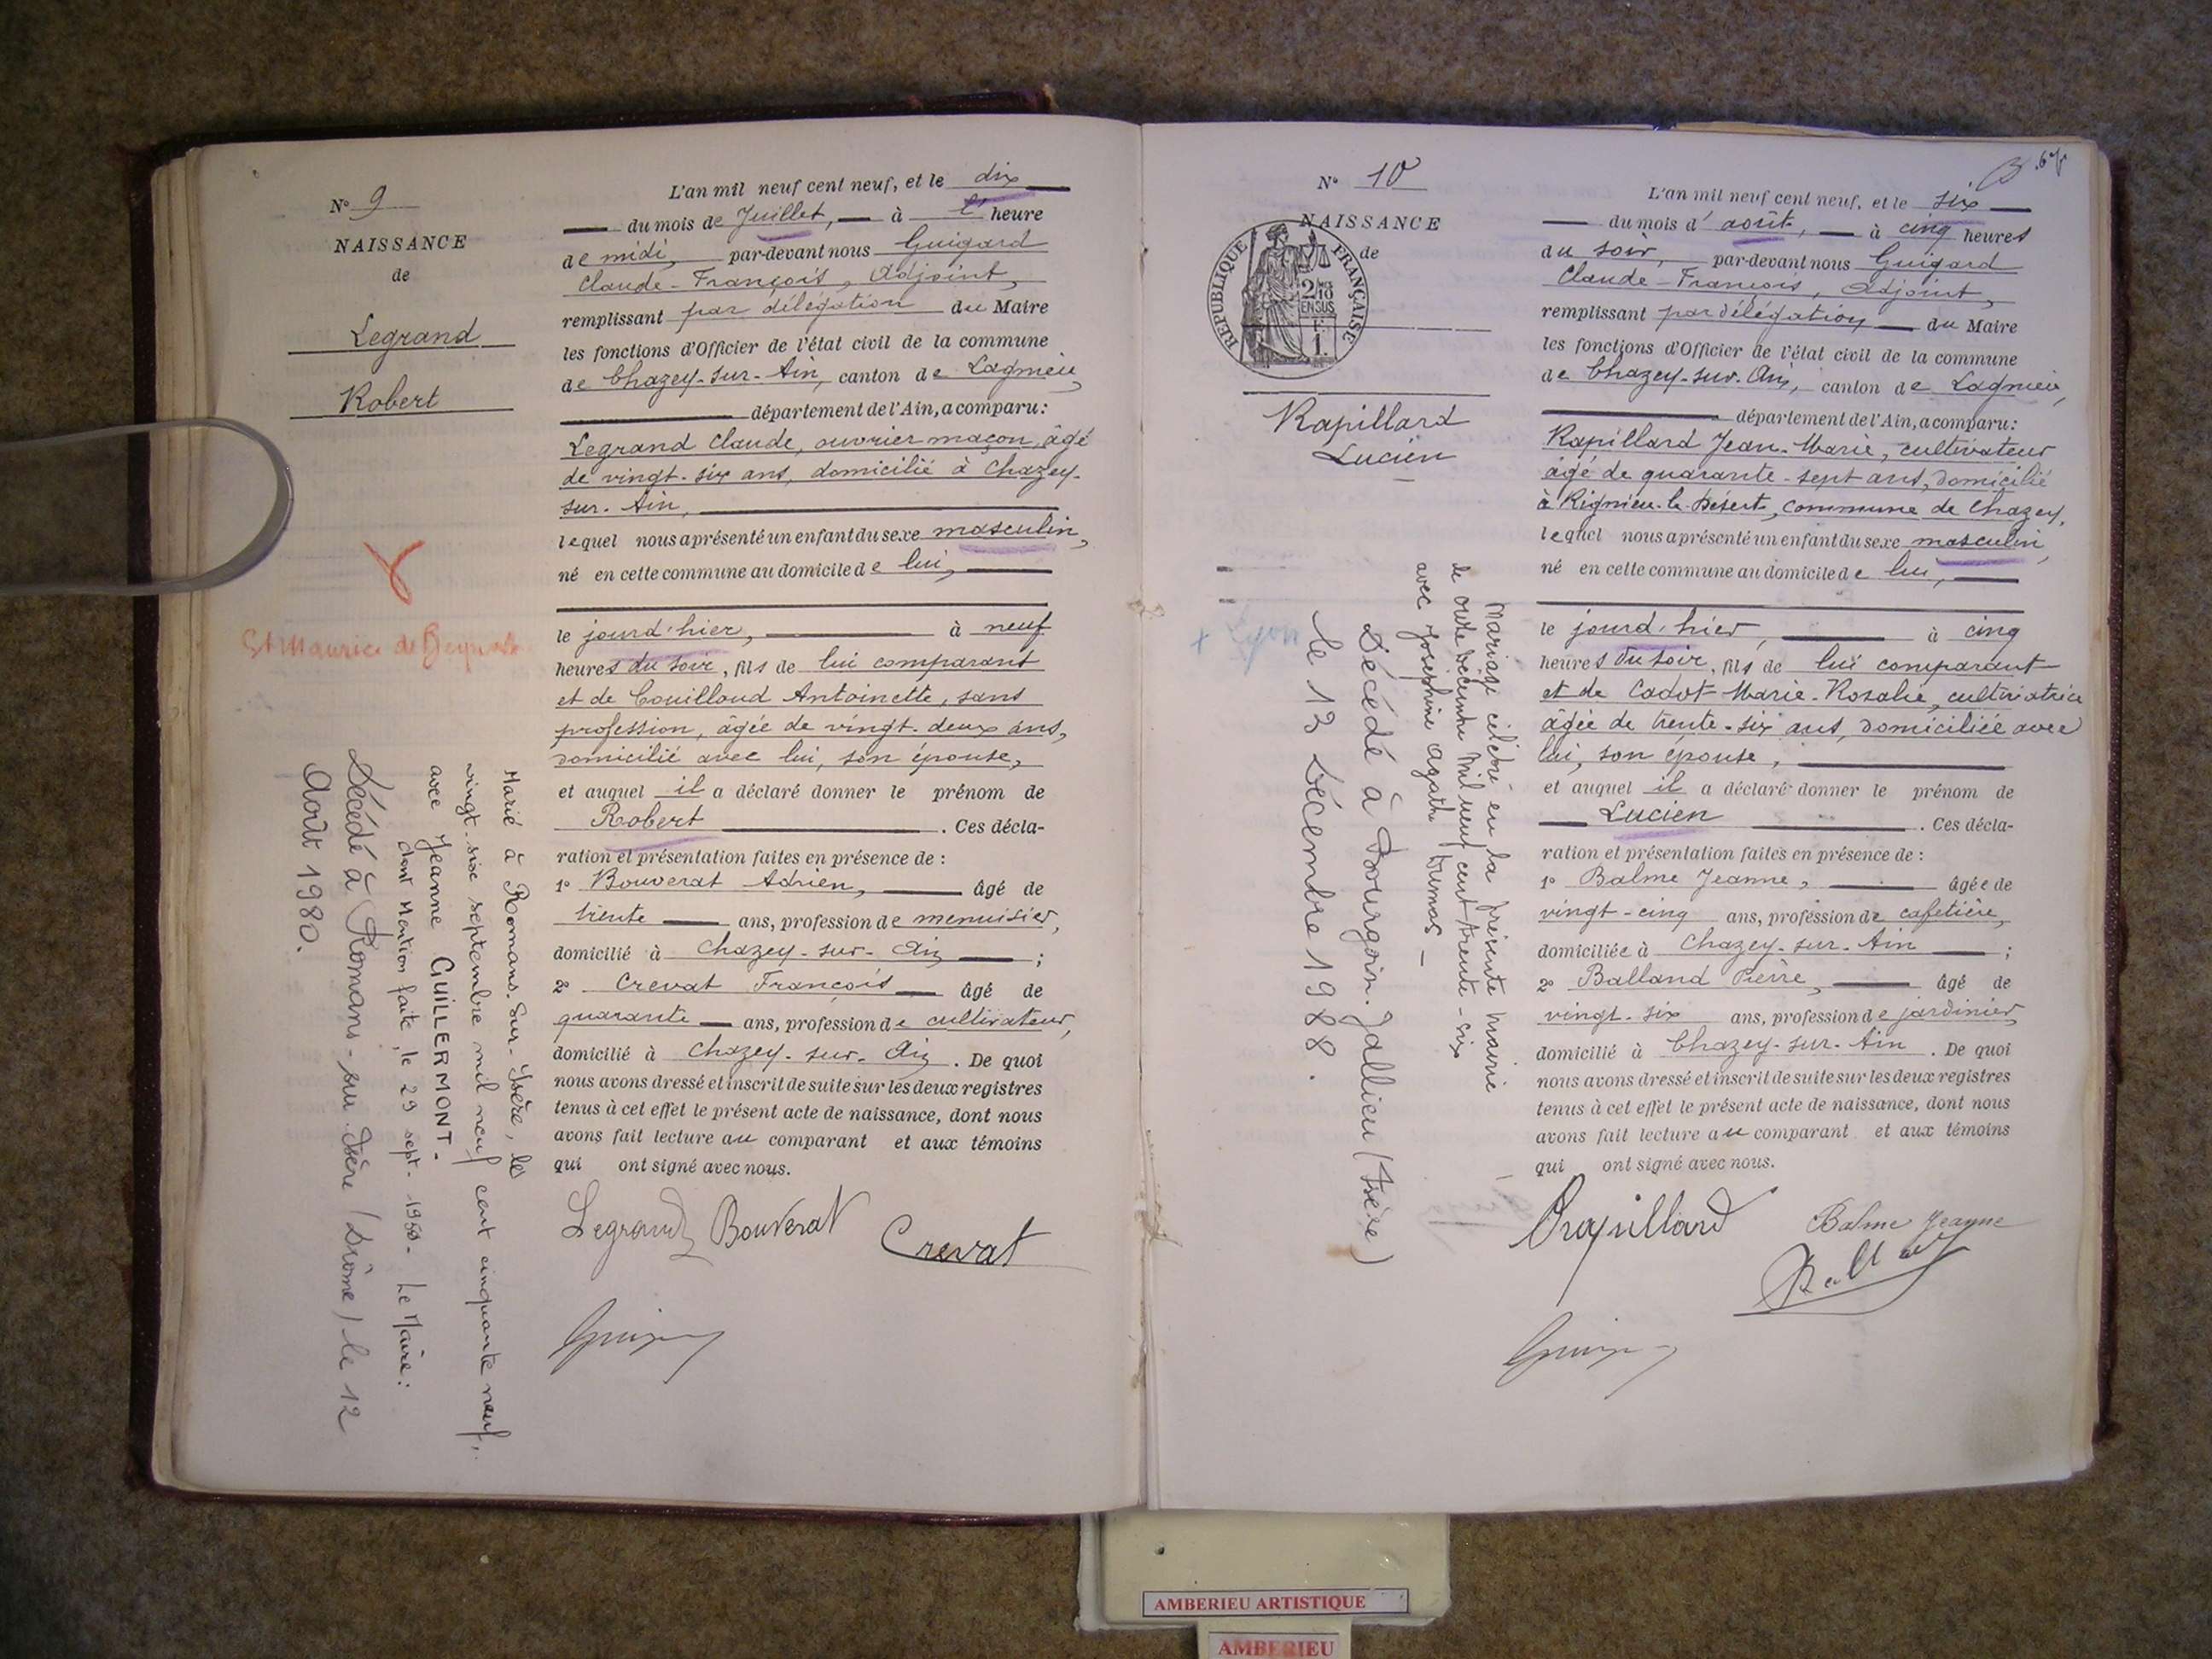 N° 9
NAISSANCE
de
Legrand
Robert
St Maurice de
L'an mil neuf cent neuf, et le dix
du mois de Juillet, à l' heure
de midi, par-devant nous Guigard
Claude-François, Adjoint,
remplissant par délégation du Maire
les fonctions d'Officier de l'état civil de la commune
de Chazey-sur-Ain, canton de Lagnieu,
département de l'Ain, a comparu:
Legrand Claude, ouvrier maçon, âgé
de vingt-six ans, domicilié à Chazey-
sur-Ain,
lequel nous a présenté un enfant du sexe masculin,
né en cette commune au domicile de lui,
le jourd'hier, à neuf
heures du soir, fils de lui comparant
et de Couilloud Antoinette, sans
profession, âgée de vingt-deux ans,
domicilié avec lui, son épouse,
et auquel il a déclaré donner le prénom de
Robert . Ces décla-
ration et présentation faites en présence de :
1° Bouverat Adrien, âgé de
trente ans, profession de menuisier,
domicilié à Chazey-sur-Ain ;
2° Crevat François âgé de
quarante ans, profession de cultivateur,
domicilié à Chazey-sur-Ain . De quoi
nous avons dressé et inscrit de suite sur les deux registres
tenus à cet effet le présent acte de naissance, dont nous
avons fait lecture au comparant et aux témoins
qui ont signé avec nous.
Legrand Bouverat Crevat
Marié à Romans-sur-Isère, le
vingt-six septembre mil neuf cent cinquante neuf,
avec Jeanne GUILLERMONT-
dont Mention faite, le 29 sept- 1959- Le Maire:
Décédé à Romans-sur-Isère (Drôme) le 12
Août 1980.
N° 10
NAISSANCE
de
REPUBLIQUE FRANÇAISE
2/10
EN SUS
Rapillard
Lucien
+ Lyon
L'an mil neuf cent neuf, et le six
du mois d'août, à cinq heures
du soir, par-devant nous Guigard
Claude-François, Adjoint,
remplissant par délégation du Maire
les fonctions d'Officier de l'état civil de la commune
de Chazey-sur-Ain, canton de Lagnieu,
département de l'Ain, a comparu:
Rapillard Jean-Marie, cultivateur
âgé de quarante-sept ans, domicilié
à Rignieu-le-Désert, commune de Chazey,
lequel nous a présenté un enfant du sexe masculin,
né en cette commune au domicile de lui,
le jourd'hier, à cinq
heures du soir, fils de lui comparant
et de Cadot Marie-Rosalie, cultivatrice
âgée de trente-six ans, domiciliée avec
lui, son épouse,
et auquel il a déclaré donner le prénom de
Lucien . Ces décla-
ration et présentation faites en présence de :
1° Balme Jeanne, âgée de
vingt-cinq ans, profession de cafetière,
domiciliée à Chazey-sur-Ain ;
2° Balland Pierre, âgé de
vingt-six ans, profession de jardinier,
domicilié à Chazey-sur-Ain . De quoi
nous avons dressé et inscrit de suite sur les deux registres
tenus à cet effet le présent acte de naissance, dont nous
avons fait lecture au comparant et aux témoins
qui ont signé avec nous.
Rapillard Balme Jeanne
Mariage célébré en la présente mairie
le onze décembre mil neuf cent trente-six
avec Joséphine Agathe
Décédé à Bourgoin-Jallieu (Isère)
le 13 Décembre 1988.
AMBERIEU ARTISTIQUE
AMBERIEU